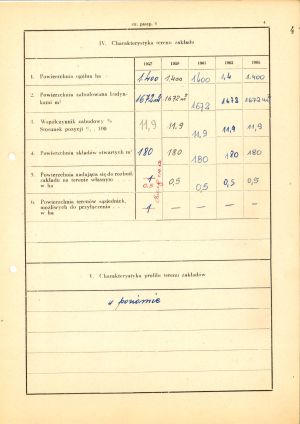 nr. paszp. 1
4
IV. Charakterystyka terenu zakładu
1957 1959 1961 1963 1965
1. Powierzchnia ogólna ha 1.400 1.400 1.400 1,4 1.400
2. Powierzchnia zabudowana budyn-
kami m² 1672 m² 1672 m² 1672 1672 1672 m²
3. Współczynnik zabudowy %
Stosunek pozycji 11,9 11,9 11,9 11,9 11,9
4. Powierzchnia składów otwartych m² 180 180 180 180 180
5. Powierzchnia nadająca się do rozbud.
zakładu na terenie własnym 1
w ha 0,5 0,5 0,5 0,5 0,5
6. Powierzchnia terenów sąsiednich,
możliwych do przyłączenia 1 — — — —
w ha
V. Charakterystyka profilu terenu zakładów
w poziomie